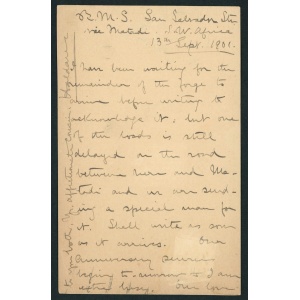 B. M. S. San Salvador Stn
via Matadi. S. W. Africa
13th Sept. 1901.
have been waiting for the
remainder of the forge to
arrive before writing to
acknowledge it, but one
of the loads is still
delayed on the road
between here and Ma-
tadi and we are send-
ing a special man for
it. Shall write as soon
as it arrives. Our
Anniversary services
begin to-morrow so I am
extra busy. 
both, affectionate